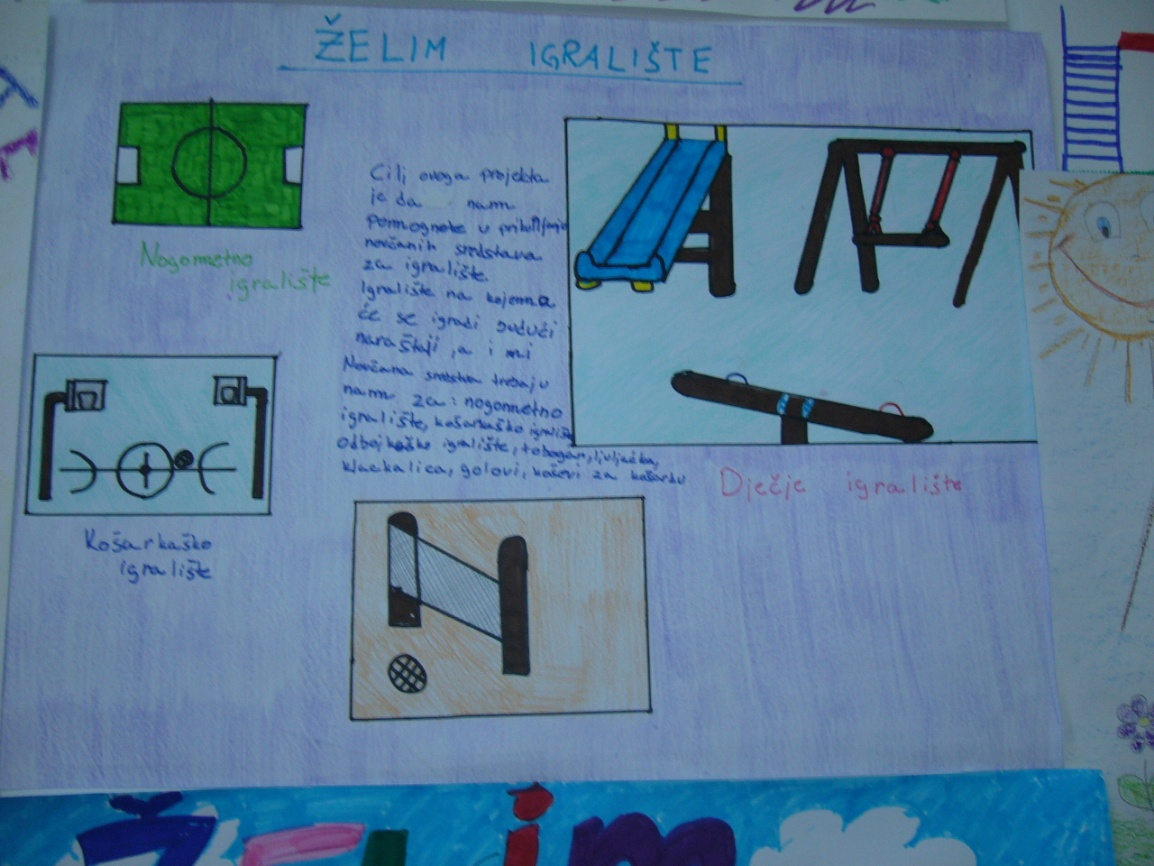 ŽELIM IGRALIŠTE
Nogometno
igralište
Cilj ovoga projekta
je da nam
pomognete u prikupljanju
novčanih sredstava
za igralište.
Igralište na kojema
će se igrati budući
naraštaji, a i mi
Novčana sredstva trebaju
nam za: nogometno
igralište, košarkaško igralište
odbojkaško igralište, tobogan, ljuljačka,
klackalica, golovi, koševi za košarku
Dječje igralište
Košarkaško
igralište
Želim